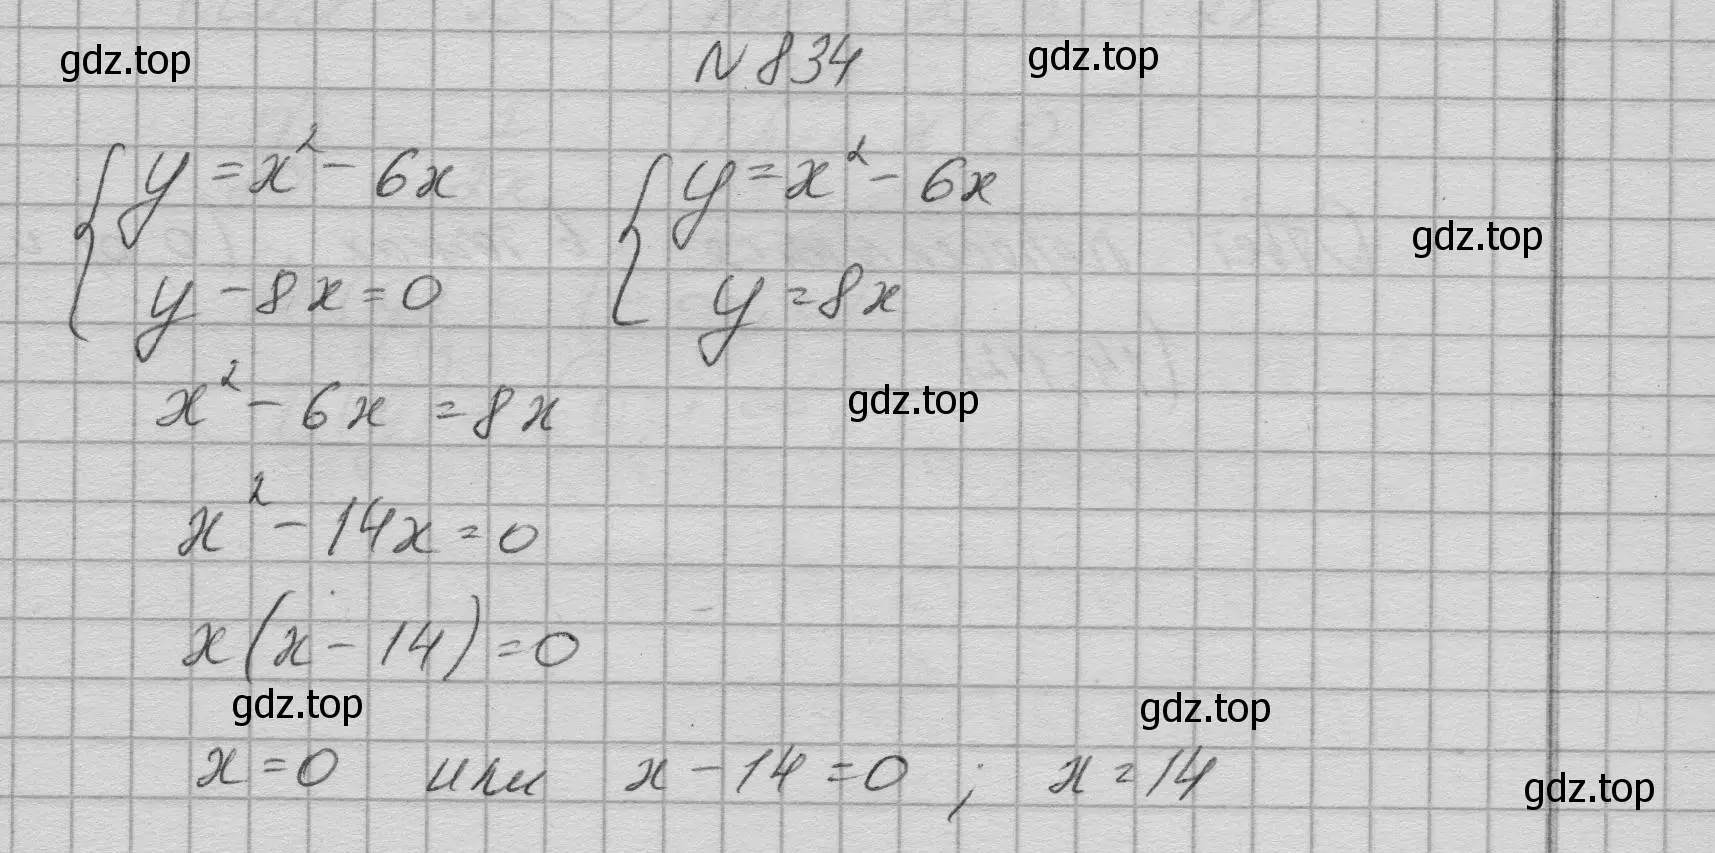 gdz.top N 834 gdz.top
{ y = x² - 6x { y = x² - 6x
gdz.top
y - 8x = 0 y = 8x
x² - 6x = 8x gdz.top
x² - 14x = 0
x(x - 14) = 0
gdz.top gdz.top
x = 0 или x - 14 = 0 ; x = 14
gdz.top